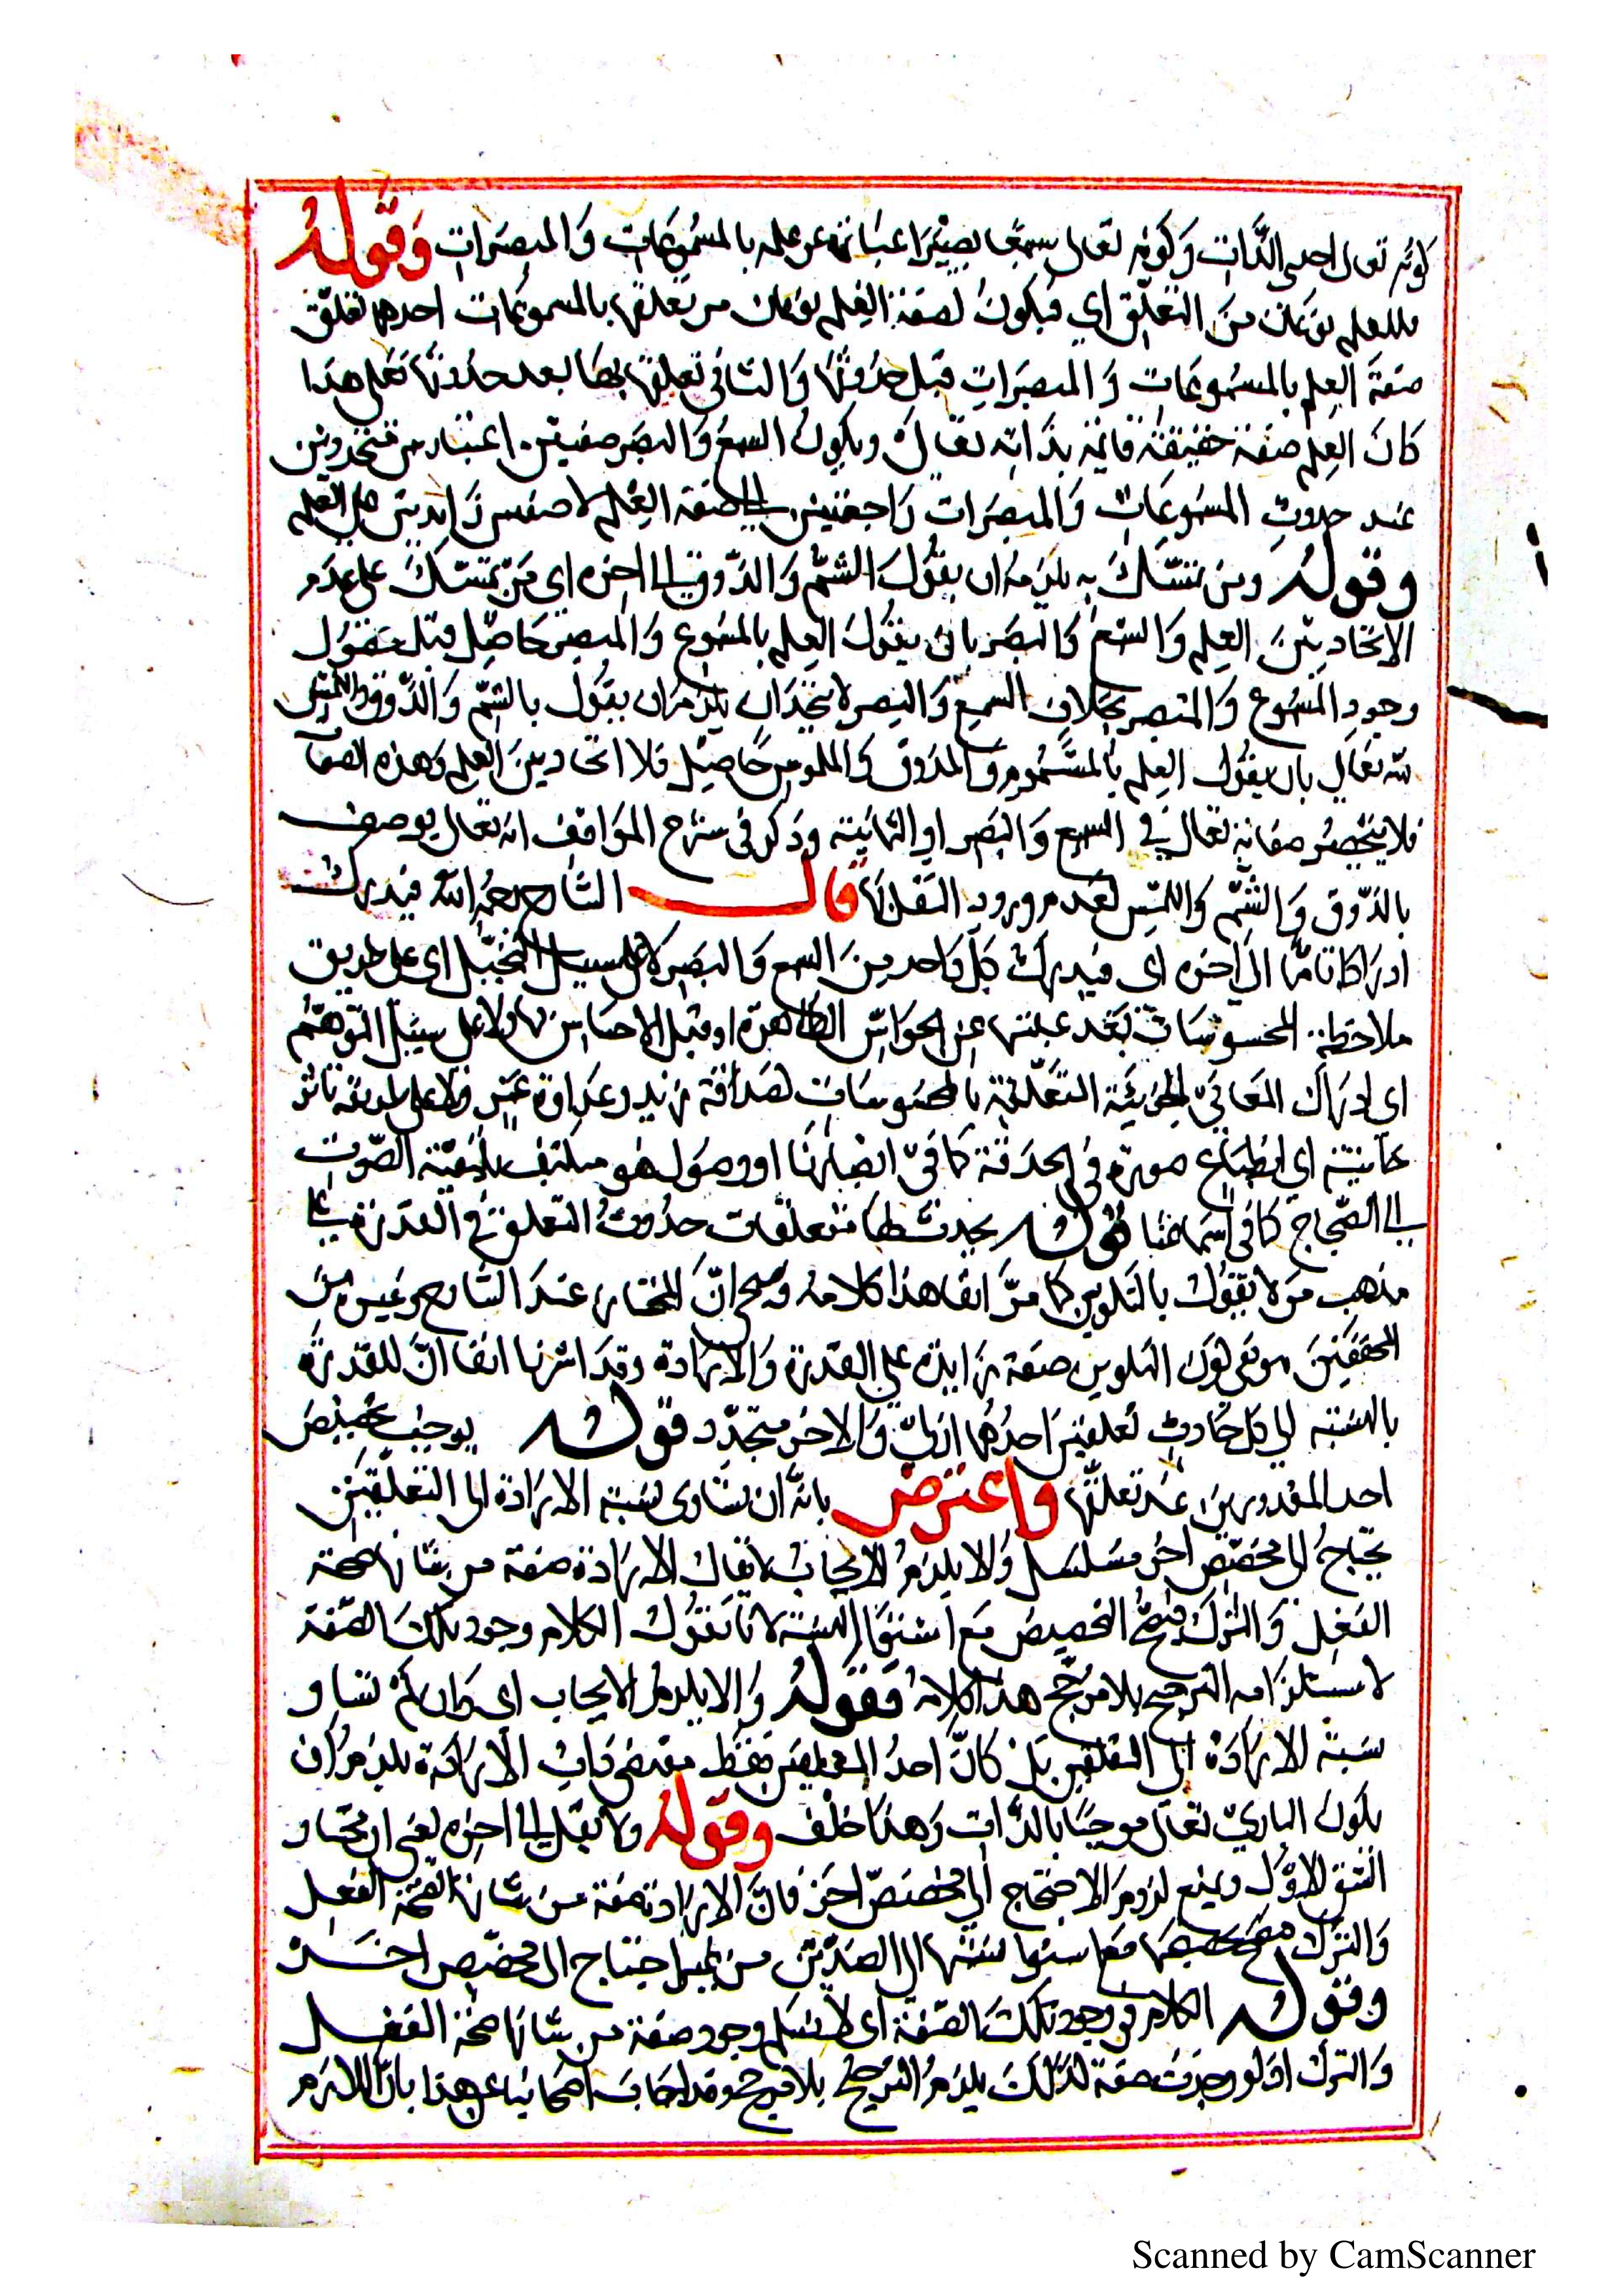 كونه تعالى احدى الذات وكونه تعالى سميعا بصيرا عبارة عن علمه بالمسموعات والمبصرات وقوله
فللعلم نوعان من التعلق اي فيكون لصفة العلم نوعان من تعلقها بالمسموعات احدهما تعلق
صفة العلم بالمسموعات والمبصرات قبل حدوثها والثاني تعلقها بها بعد حدوثها فعلى هذا
كان العلم صفة حقيقة قائمة بذاته تعالى ويكون السمع والبصر صفتين اعتبار من متجددين
عند حدوث المسموعات والمبصرات راجعتين الى صفة العلم لا صفتين زايدتين على العلم
وقوله ومن تمسك به يلزمه ان يقول الشم والذوق الى اخره اي من تمسك على عدم
الاتحاد بين العلم والسمع والبصر بان يقول العلم بالمسموع والمبصر حاصل قبل حصول
وجود المسموع والمبصر بخلاف السمع والبصر لا يتحدان يلزم ان يقول بالشم والذوق واللمس
لله تعالى بان يقول العلم بالمشموم والمذوق والملموس حاصل فلا اتحاد بين العلم وهذه الصفات
فلا ينحصر صفاته تعالى في السمع والبصر او الثمانية وذكر في شرح المواقف انه تعالى يوصف
بالذوق والشم واللمس لعدم ورود النقل بها قال الشارح رحمه الله فيدرك
ادراكا تاما الى اخره اي فيدرك بكل واحد من السمع والبصر لا على سبيل التخيل اي على طريق
ملاحظة المحسوسات بعد غيبتها عن الحواس الظاهرة او قبل الاحساس بها ولا على سبيل التوهم
اي ادراك المعاني الجزئية المتعلقة بالمحسوسات كصداقة زيد وعداوة عمر ولا على طريقة تاثر
حاسته اي انطباع صورة في الحدقة كما في ابصارنا او وصول هو متكيف بكيفية الصوت
الى الصماخ كما في اسماعنا قوله يحدث لها متعلقات حدوث التعلق في القدرة على
مذهب من لا يقول بالتكوين كما مر انفا هذا كلامه وصح ان المختار عند الشارح وغيره من
المحققين هو نفى كون التكوين صفة زايدة على القدرة والارادة وقد اشرنا انفا ان للقدرة
بالنسبة الى كل حادث تعلقين احدهما ازلي والاخر متجدد قوله يوجب تخصيص
احد المقدورين عند تعلقها واعترض بانه ان تساوى نسبة الارادة الى التعلقين
يحتاج الى مخصص اخر فيتسلسل والا يلزم الايجاب لا يقال الارادة صفة من شانها صحة
الفعل والترك فيصح التخصيص مع استواء النسبة لانا نقول الكلام وجود تلك الصفة
لاستلزامه الترجيح بلا مرجح هذا كلامه فقوله والا يلزم الايجاب اي وان لم تساو
نسبة الارادة الى التعلقين بل كان احد التعلقين فقط مقتضى ذات الارادة يلزم ان
يكون الباري تعالى موجبا بالذات وهذا خلف وقوله ولا يقال الى اخره يعني ان نختار
الشق الاول ويمنع لزوم الاحتجاج الى مخصص اخر فان الارادة صفة من شانها صحة الفعل
والترك فيصح تخصيصها مع استواء نسبتها الى الضدين من غير احتياج الى مخصص اخر
وقوله الكلام في وجود تلك الصفة اي لا نسلم وجود صفة من شانها صحة الفعل
والترك اذ لو وجدت صفة كذلك يلزم الترجيح بلا مرجح وقد اجاب اصحابنا عن هذا بان اللازم
Scanned by CamScanner